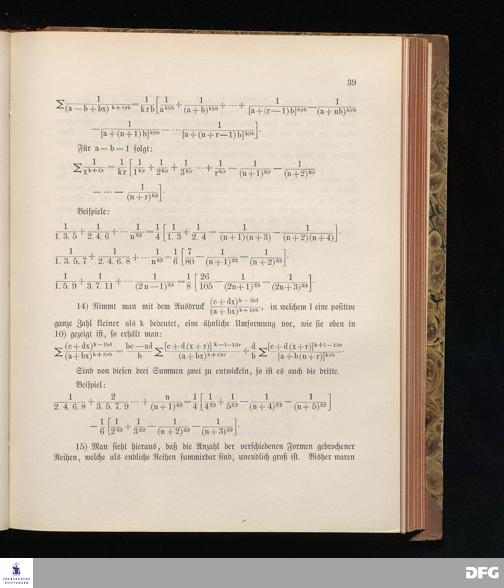 39
∑ 1/(a − b + bx)^{k+1|rb} = 1/krb [1/a^{k|rb} + 1/(a + b)^{k|rb} + ⋯ + 1/[a + (r−1)b]^{k|rb} − 1/(a + nb)^{k|rb}
− 1/[a + (n + 1)b]^{k|rb} − ⋯ 1/[a + (n + r − 1)b]^{k|rb}].
Für a = b = 1 folgt:
∑ 1/x^{k+1|r} = 1/kr [1/1^{k|r} + 1/2^{k|r} + 1/3^{k|r} ⋯ + 1/r^{k|r} − 1/(n + 1)^{k|r} − 1/(n + 2)^{k|r}
− ⋯ − 1/(n + r)^{k|r}].
Beispiele:
1/1. 3. 5 + 1/2. 4. 6 + ⋯ 1/n^{3|2} = 1/4 [1/1. 3 + 1/2. 4 − 1/(n + 1)(n + 3) − 1/(n + 2)(n + 4)].
1/1. 3. 5. 7 + 1/2. 4. 6. 8 + ⋯ 1/n^{4|2} = 1/6 [7/80 − 1/(n + 1)^{3|2} − 1/(n + 2)^{3|2}].
1/1. 5. 9 + 1/3. 7. 11 + ⋯ 1/(2n − 1)^{3|4} = 1/8 [26/105 − 1/(2n + 1)^{2|4} − 1/(2n + 3)^{2|4}].
14) Nimmt man mit dem Ausdruck (c + dx)^{k−l|d}/(a + bx)^{k+1|rb}, in welchem l eine positive
ganze Zahl kleiner als k bedeutet, eine ähnliche Umformung vor, wie sie oben in
10) gezeigt ist, so erhält man:
∑ (c + dx)^{k−l|d}/(a + bx)^{k+1|rb} = bc − ad/b ∑ [c + d(x + r)]^{k−l−1|dr}/(a + bx)^{k+1|br} + d/b ∑ [c + d(x + r)]^{k+l−1|dr}/[a + b(n + r)]^{k|rb}.
Sind von diesen drei Summen zwei zu entwickeln, so ist es auch die dritte.
Beispiel:
1/2. 4. 6. 8 + 2/3. 5. 7. 9 ⋯ + n/(n + 1)^{4|2} = 1/4 [1/4^{2|2} + 1/5^{2|2} − 1/(n + 4)^{2|2} − 1/(n + 5)^{2|2}]
− 1/6 [1/2^{3|2} + 1/3^{3|2} − 1/(n + 2)^{3|2} − 1/(n + 3)^{3|2}].
15) Man sieht hieraus, daß die Anzahl der verschiedenen Formen gebrochener
Reihen, welche als endliche Reihen summirbar sind, unendlich groß ist. Bisher waren
FRANCKESCHE
STIFTUNGEN
DFG